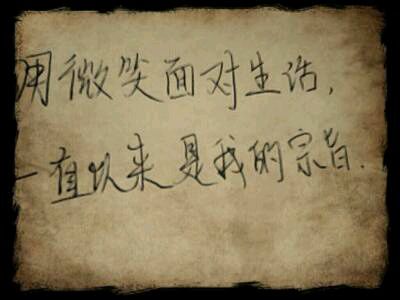 用微笑面对生活,
一直以来是我的宗旨.